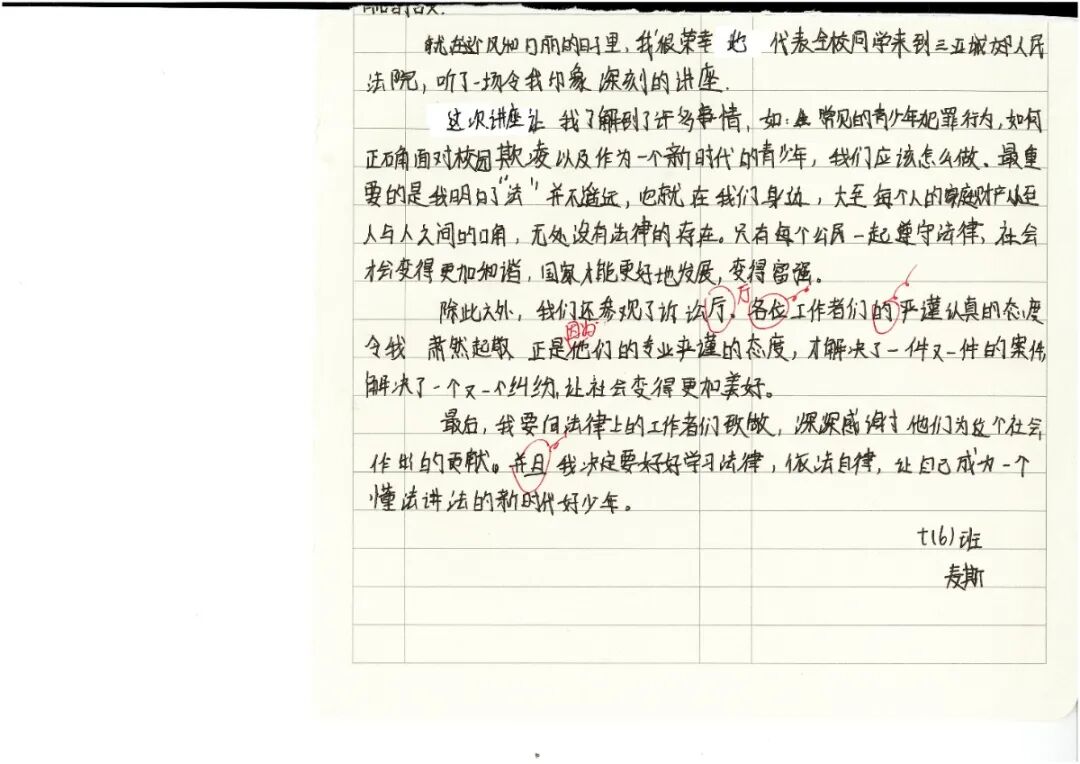 就在这风和日丽的日子里，我很荣幸地代表全校同学来到三亚城郊人民
法院，听了一场令我印象深刻的讲座.
这次讲座让我了解到了许多事情，如：常见的青少年犯罪行为，如何
正确面对校园欺凌以及作为一个新时代的青少年，我们应该怎么做。最重
要的是我明白了“法”并不遥远，也就在我们身边，大至每个人的家庭财产小至
人与人之间的口角，无处没有法律的存在。只有每个公民一起遵守法律，社会
才会变得更加和谐，国家才能更好地发展，变得富强。
除此之外，我们还参观了诉讼厅。厅各位工作者们的严谨认真的态度
令我肃然起敬 正是因为他们的专业严谨的态度，才解决了一件又一件的案件，
解决了一个又一个纠纷，让社会变得更加美好。
最后，我要向法律上的工作者们致敬，深深感谢于他们为这个社会
作出的贡献。并且我决定要好好学习法律，依法自律，让自己成为一个
懂法讲法的新时代好少年。
七(6)班
麦斯